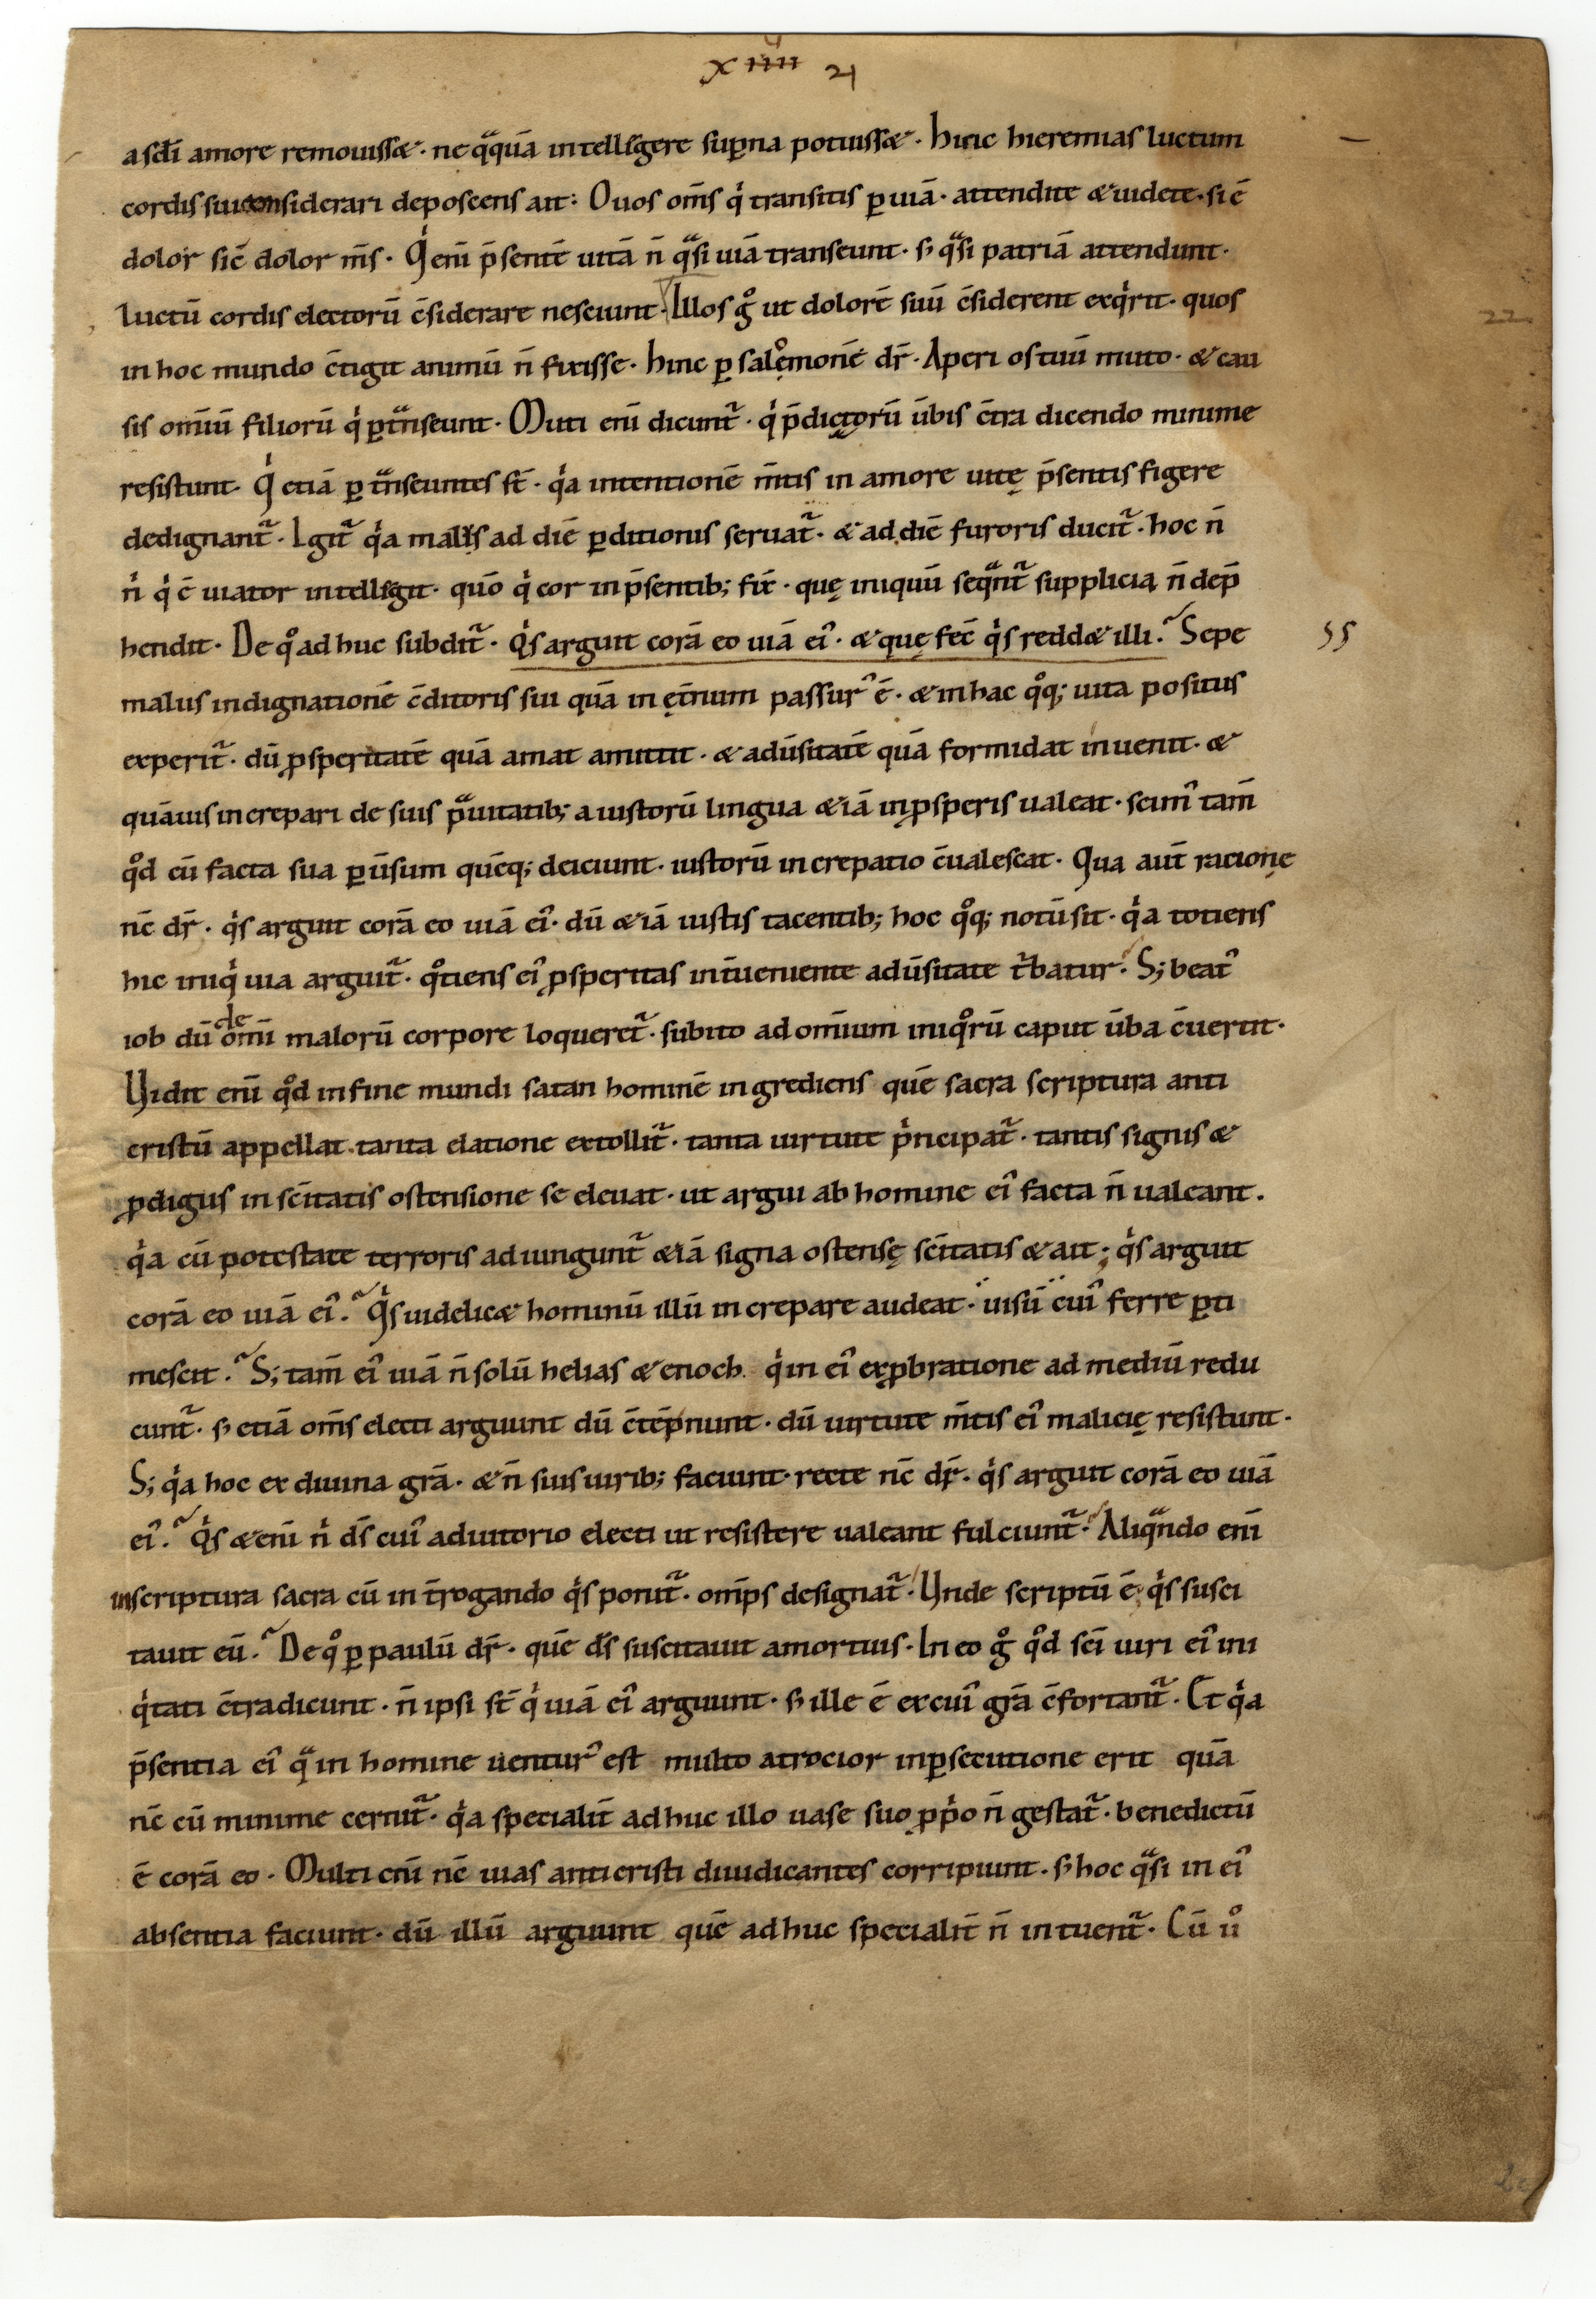 xıııı 21
a scd̄i amore remouissæ · ne qᵃquā intelligere sup̱na potuissæ · hinc hieremias luctum
cordis sui considerari deposcens ait: O uos om̄s qⁱ transitis p̱ uiā · attendite & uidete · si ē
dolor sic̄ dolor m̄s · Qⁱ eni̅ p̄sentē uitā n̄ qᵃsi uiā transeunt · s; qᵃsi patriā attendunt ·
luctū cordis electorū c̄siderare nesciunt · Illos gᵒ ut dolorē suū c̄siderent exqⁱrit · quos
in hoc mundo c̄tigit animū n̄ fixisse · hinc p̱ salomonē dr̄ · Aperi os tuū muto · & cau
sis om̄iū filiorū qⁱ p̱tᵃnseunt · Muti eni̅ dicunt᷑ · qⁱ p̄dictorū ūbis c̄tra dicendo minime
resistunt · Qⁱ etiā p̱tᵃnseuntes st̄ · qⁱa intentionē m̄tis in amore uitę p̄sentis figere
dedignant᷑ · Igit᷑ qⁱa malus ad diē p̱ditionis seruat᷑ · & ad diē furoris ducit᷑ · hoc n̄
nⁱ qⁱ ē uiator intelligit · quō qⁱ cor in p̄sentib; fix̄ · quę iniquū seqᵃnt᷑ supplicia n̄ dep̄
hendit · De qᵒ ad huc subdit᷑ · Qⁱs arguit corā eo uiā ei᷒ · & quę fec̄ qⁱs reddæ illi · Sepe
55
22
malus indignationē c̄ditoris sui quā in ęt̄num passur᷒ ē · & in hac qᵒq; uita positus
experit᷑ · dū ꝓsperitatē quā amat amittit · & adūsitatē quā formidat inuenit · &
quāuis increpari de suis pᵃuitatib; a iustorū lingua &iā in ꝓsperis ualeat · scim᷒ tam̄
qᵒd cū facta sua p̱ūsum quēq; deiciunt · iustorū increpatio c̄ualescat · Qua aut̄ racione
nc̄ dr̄ · qⁱs arguit corā eo uiā ei᷒ · dū &iā iustis tacentib; hoc qᵒq; notū sit · qⁱa totiens
hic iniqⁱ uia arguit᷑ · qᵒtiens ei᷒ ꝓsperitas int̄ueniente adūsitate tⁱbatur · S; beat᷒
iob dū de om̄i malorū corpore loqueret᷑ · subito ad om̄ium iniqᵒrū caput ūba c̄uertit ·
Vidit eni̅ qᵒd in fine mundi satan hominē ingrediens quē sacra scriptura anti
cristū appellat · tanta elatione extollit᷑ · tanta uirtute pⁱncipat᷑ · tantis signis &
ꝓdigiis in sc̄itatis ostensione se eleuat · ut argui ab homine ei᷒ facta n̄ ualeant ·
qⁱa cū potestate terroris adiungunt᷑ &iā signa ostensę sc̄itatis & ait; qⁱs arguit
corā eo uiā ei᷒ · Qⁱs uidelicæ hominū illū increpare audeat · uisū cui᷒ ferre p̱ti
mescit · S; tam̄ ei᷒ uiā n̄ solū helias & enoch qⁱ in ei᷒ exꝓbratione ad mediū redu
cunt᷑ · s; etiā om̄s electi arguunt dū c̄tēpnunt · dū uirtute m̄tis ei᷒ malicię resistunt ·
S; qⁱa hoc ex diuina grā · & n̄ suis uirib; faciunt · recte nc̄ dr̄ · qⁱs arguit corā eo uiā
ei᷒ · Qⁱs &eni̅ nⁱ ds̄ cui᷒ adiutorio electi ut resistere ualeant fulciunt᷑ · Aliqᵃndo eni̅
in scriptura sacra cū int̄rogando qⁱs ponit᷑ · omp̄s designat᷑ · Vnde scriptū ē · qⁱs susci
tauit eū · De qᵒ p̱ paulū dr̄ · quē ds̄ suscitauit a mortuis · In eo gᵒ qᵒd sc̄i uiri ei᷒ ini
qⁱtati c̄tradicunt · n̄ ipsi st̄ qⁱ uiā ei᷒ arguunt · s; ille ē ex cui᷒ grā c̄fortant᷑ · Et qⁱa
p̄sentia ei᷒ qᵃ in homine uentur᷒ est multo atrocior in p̱secutione erit quā
nc̄ cū minime cernit᷑ · qⁱa specialit̄ ad huc illo uase suo ꝓpⁱo n̄ gestat᷑ · benedictū
ē corā eo · Multi eni̅ nc̄ uias anticristi diiudicantes corripiunt · s; hoc qᵃsi in ei᷒
absentia faciunt · dū illū arguunt quē ad huc specialit̄ n̄ intuent᷑ · Cū uᵒ